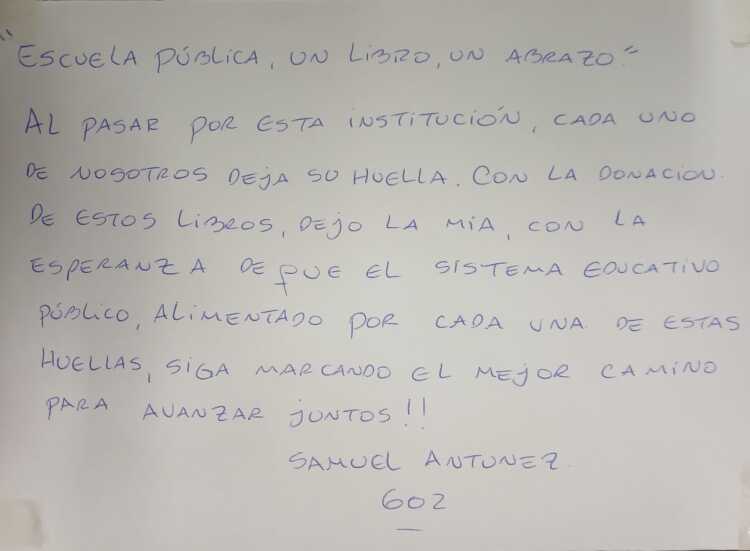 "ESCUELA PÚBLICA, UN LIBRO, UN ABRAZO"
AL PASAR POR ESTA INSTITUCIÓN, CADA UNO
DE NOSOTROS DEJA SU HUELLA. CON LA DONACION
DE ESTOS LIBROS, DEJO LA MÍA, CON LA
ESPERANZA DE QUE EL SISTEMA EDUCATIVO
PÚBLICO, ALIMENTADO POR CADA UNA DE ESTAS
HUELLAS, SIGA MARCANDO EL MEJOR CAMINO
PARA AVANZAR JUNTOS!!
SAMUEL ANTUNEZ.
602